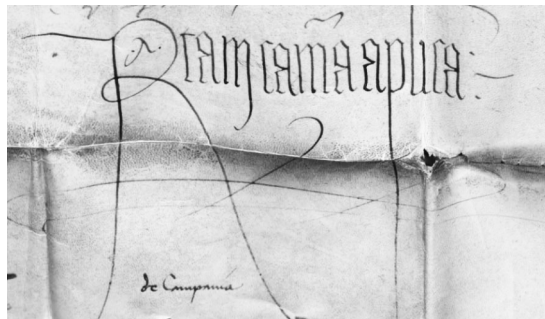 Rta in cam̃a aplica:
de Campania